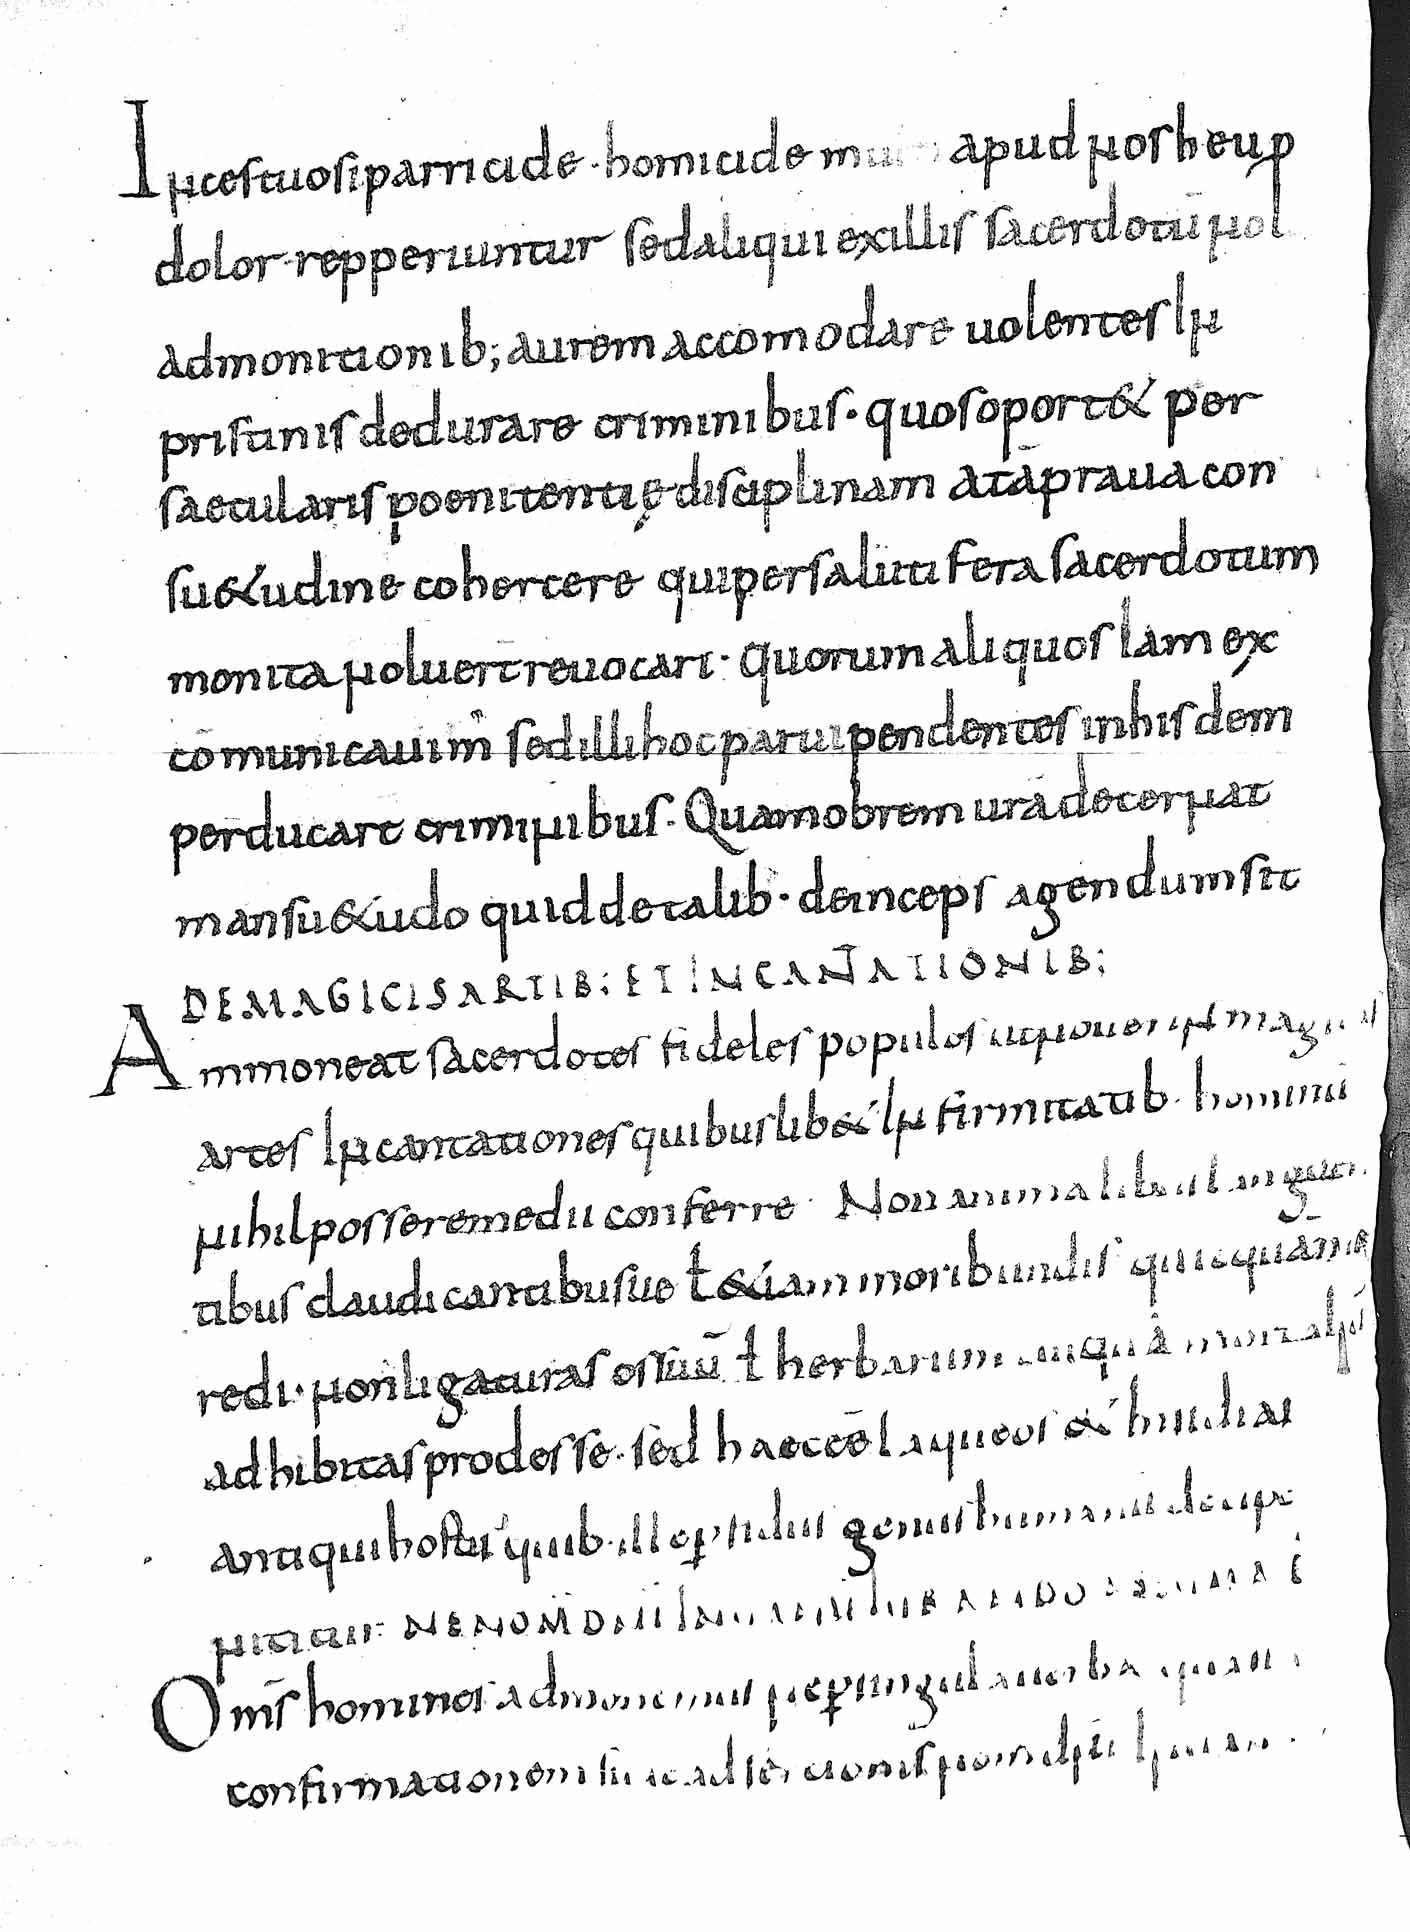 Incestuosi parricide · homicide multi apud nos heu p
dolor · repperiuntur sed aliqui ex illis sacerdotū nol
admonitionib; aurem accomodare uolentes In
pristinis dedurare criminibus · quos oport& per
saecularis poenitentię disciplinam a tā praua con
su&udine cohercere qui per salutifera sacerdotum
monita noluer̄t reuocari · Quorum aliquos Iam ex
cōmunicauim̄ sed illi hoc paruipendentes in hisdem
perducart criminibus · Quamobrem urā decernat
mansu&udo quid de talib · deinceps agendum sit
DE MAGICIS ARTIB; ET INCANTATIONIB;
Ammoneat sacerdotes fideles populos ut nouerint magicas
artes Incantationes quibuslib& Infirmitatib · hominū
nihil posse remedii conferre · Non animalibus languen
tibus claudicantibusue ł &iam moribundis quicquā me
redi · non ligaturas ossuū ł herbarum cuiquā mortaliū
adhibitas prodesse · sed haec eē laqueos & Insidias
antiqui hostis quib · ille p̱fidus genus humanū decipe
nititur
Om̄s homines admonemus
confirmationem